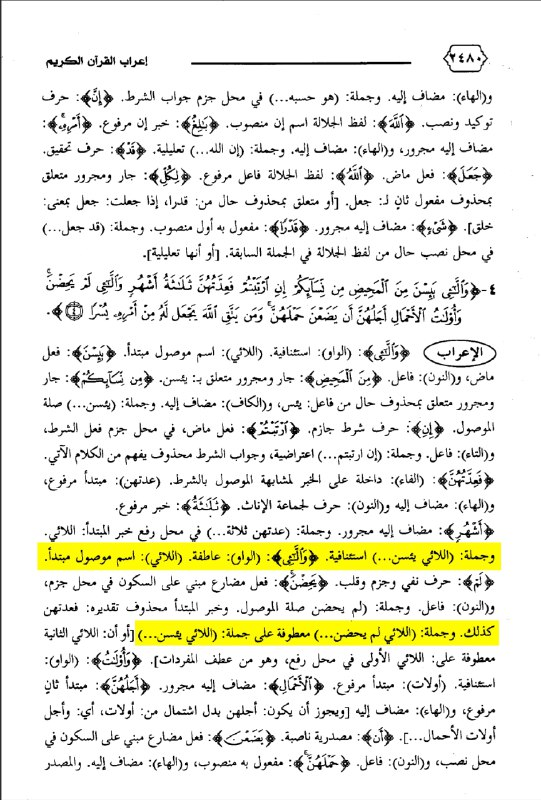 ٢٤٨٠ إعراب القرآن الكريم
و(الهاء): مضاف إليه. وجملة: (هو حسبه...) في محل جزم جواب الشرط. ﴿إِنَّ﴾: حرف
توكيد ونصب. ﴿اللَّهَ﴾: لفظ الجلالة اسم إن منصوب. ﴿بَالِغُ﴾: خبر إن مرفوع. ﴿أَمْرِهِ﴾:
مضاف إليه مجرور، و(الهاء): مضاف إليه. وجملة: (إن الله...) تعليلية. ﴿قَدْ﴾: حرف تحقيق.
﴿جَعَلَ﴾: فعل ماض. ﴿اللَّهُ﴾: لفظ الجلالة فاعل مرفوع. ﴿لِكُلِّ﴾: جار ومجرور متعلق
بمحذوف مفعول ثانٍ لـ: جعل. [أو متعلق بمحذوف حال من: قدرا، إذا جعلت: جعل بمعنى:
خلق]. ﴿شَيْءٍ﴾: مضاف إليه مجرور. ﴿قَدْرًا﴾: مفعول به أول منصوب. وجملة: (قد جعل...)
في محل نصب حال من لفظ الجلالة في الجملة السابقة. [أو أنها تعليلية].
٤ - ﴿وَاللَّائِي يَئِسْنَ مِنَ الْمَحِيضِ مِن نِّسَائِكُمْ إِنِ ارْتَبْتُمْ فَعِدَّتُهُنَّ ثَلَاثَةُ أَشْهُرٍ وَاللَّائِي لَمْ يَحِضْنَ ۚ
وَأُولَاتُ الْأَحْمَالِ أَجَلُهُنَّ أَن يَضَعْنَ حَمْلَهُنَّ ۚ وَمَن يَتَّقِ اللَّهَ يَجْعَل لَّهُ مِنْ أَمْرِهِ يُسْرًا ﴿٤﴾﴾.
الإعراب ﴿وَاللَّائِي﴾: (الواو): استئنافية. (اللائي): اسم موصول مبتدأ. ﴿يَئِسْنَ﴾: فعل
ماض، و(النون): فاعل. ﴿مِنَ الْمَحِيضِ﴾: جار ومجرور متعلق بـ: يئسن. ﴿مِن نِّسَائِكُمْ﴾: جار
ومجرور متعلق بمحذوف حال من فاعل: يئس، و(الكاف): مضاف إليه. وجملة: (يئسن...) صلة
الموصول. ﴿إِنِ﴾: حرف شرط جازم. ﴿ارْتَبْتُمْ﴾: فعل ماض، في محل جزم فعل الشرط،
و(التاء): فاعل. وجملة: (إن ارتبتم...) اعتراضية، وجواب الشرط محذوف يفهم من الكلام الآتي.
﴿فَعِدَّتُهُنَّ﴾: (الفاء): داخلة على الخبر لمشابهة الموصول بالشرط. (عدتهن): مبتدأ مرفوع،
و(الهاء): مضاف إليه و(النون): حرف لجماعة الإناث. ﴿ثَلَاثَةُ﴾: خبر مرفوع.
﴿أَشْهُرٍ﴾: مضاف إليه مجرور. وجملة: (عدتهن ثلاثة...) في محل رفع خبر المبتدأ: اللائي.
وجملة: (اللائي يئسن...) استئنافية. ﴿وَاللَّائِي﴾: (الواو): عاطفة. (اللائي): اسم موصول مبتدأ.
﴿لَمْ﴾: حرف نفي وجزم وقلب. ﴿يَحِضْنَ﴾: فعل مضارع مبني على السكون في محل جزم،
و(النون): فاعل. وجملة: (لم يحضن) صلة الموصول. وخبر المبتدأ محذوف تقديره: فعدتهن
كذلك. وجملة: (اللائي لم يحضن...) معطوفة على جملة: (اللائي يئسن...) [أو أن: اللائي الثانية
معطوفة على: اللائي الأولى في محل رفع، وهو من عطف المفردات]. ﴿وَأُولَاتُ﴾: (الواو):
استئنافية. (أولات): مبتدأ مرفوع. ﴿الْأَحْمَالِ﴾: مضاف إليه مجرور. ﴿أَجَلُهُنَّ﴾: مبتدأ ثانٍ
مرفوع، و(الهاء): مضاف إليه [ويجوز أن يكون: أجلهن بدل اشتمال من: أولات، أي: وأجل
أولات الأحمال...]. ﴿أَن﴾: مصدرية ناصبة. ﴿يَضَعْنَ﴾: فعل مضارع مبني على السكون في
محل نصب، و(النون): فاعل. ﴿حَمْلَهُنَّ﴾: مفعول به منصوب، و(الهاء): مضاف إليه. والمصدر